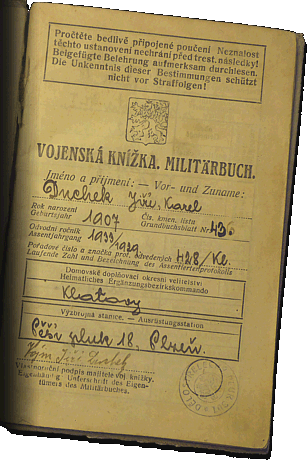 Pročtěte bedlivě připojené poučení Neznalost
těchto ustanovení nechrání před trest. následky!
Beigefügte Belehrung aufmerksam durchlesen.
Die Unkenntnis dieser Bestimmungen schützt
nicht vor Straffolgen!
VOJENSKÁ KNÍŽKA. MILITÄRBUCH.
Jméno a příjmení: — Vor- und Zuname:
Duchek Jiří, Karel
Rok narození
Geburtsjahr 1907 Čís. kmen. listu
Grundbuchsblatt Nr.
Odvodní ročník
Assentjahrgang 1933/1929
Pořadové číslo a značka prot. odvedených 428/Kl.
Laufende Zahl und Bezeichnung des Assentiertenprotokolls
Domovské doplňovací okresní velitelství
Heimatliches Ergänzungsbezirkskommando
Klatovy
Výzbrojná stanice. — Ausrüstungsstation
Pěší pluk 18, Plzeň.
Vlastnoruční podpis majitele voj. knížky.
Eigenhändige Unterschrift des Eigen-
tümers des Militärbuches.